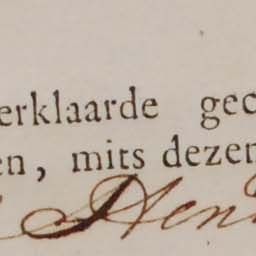 erklaarde gec
en, mits dezen
Hend